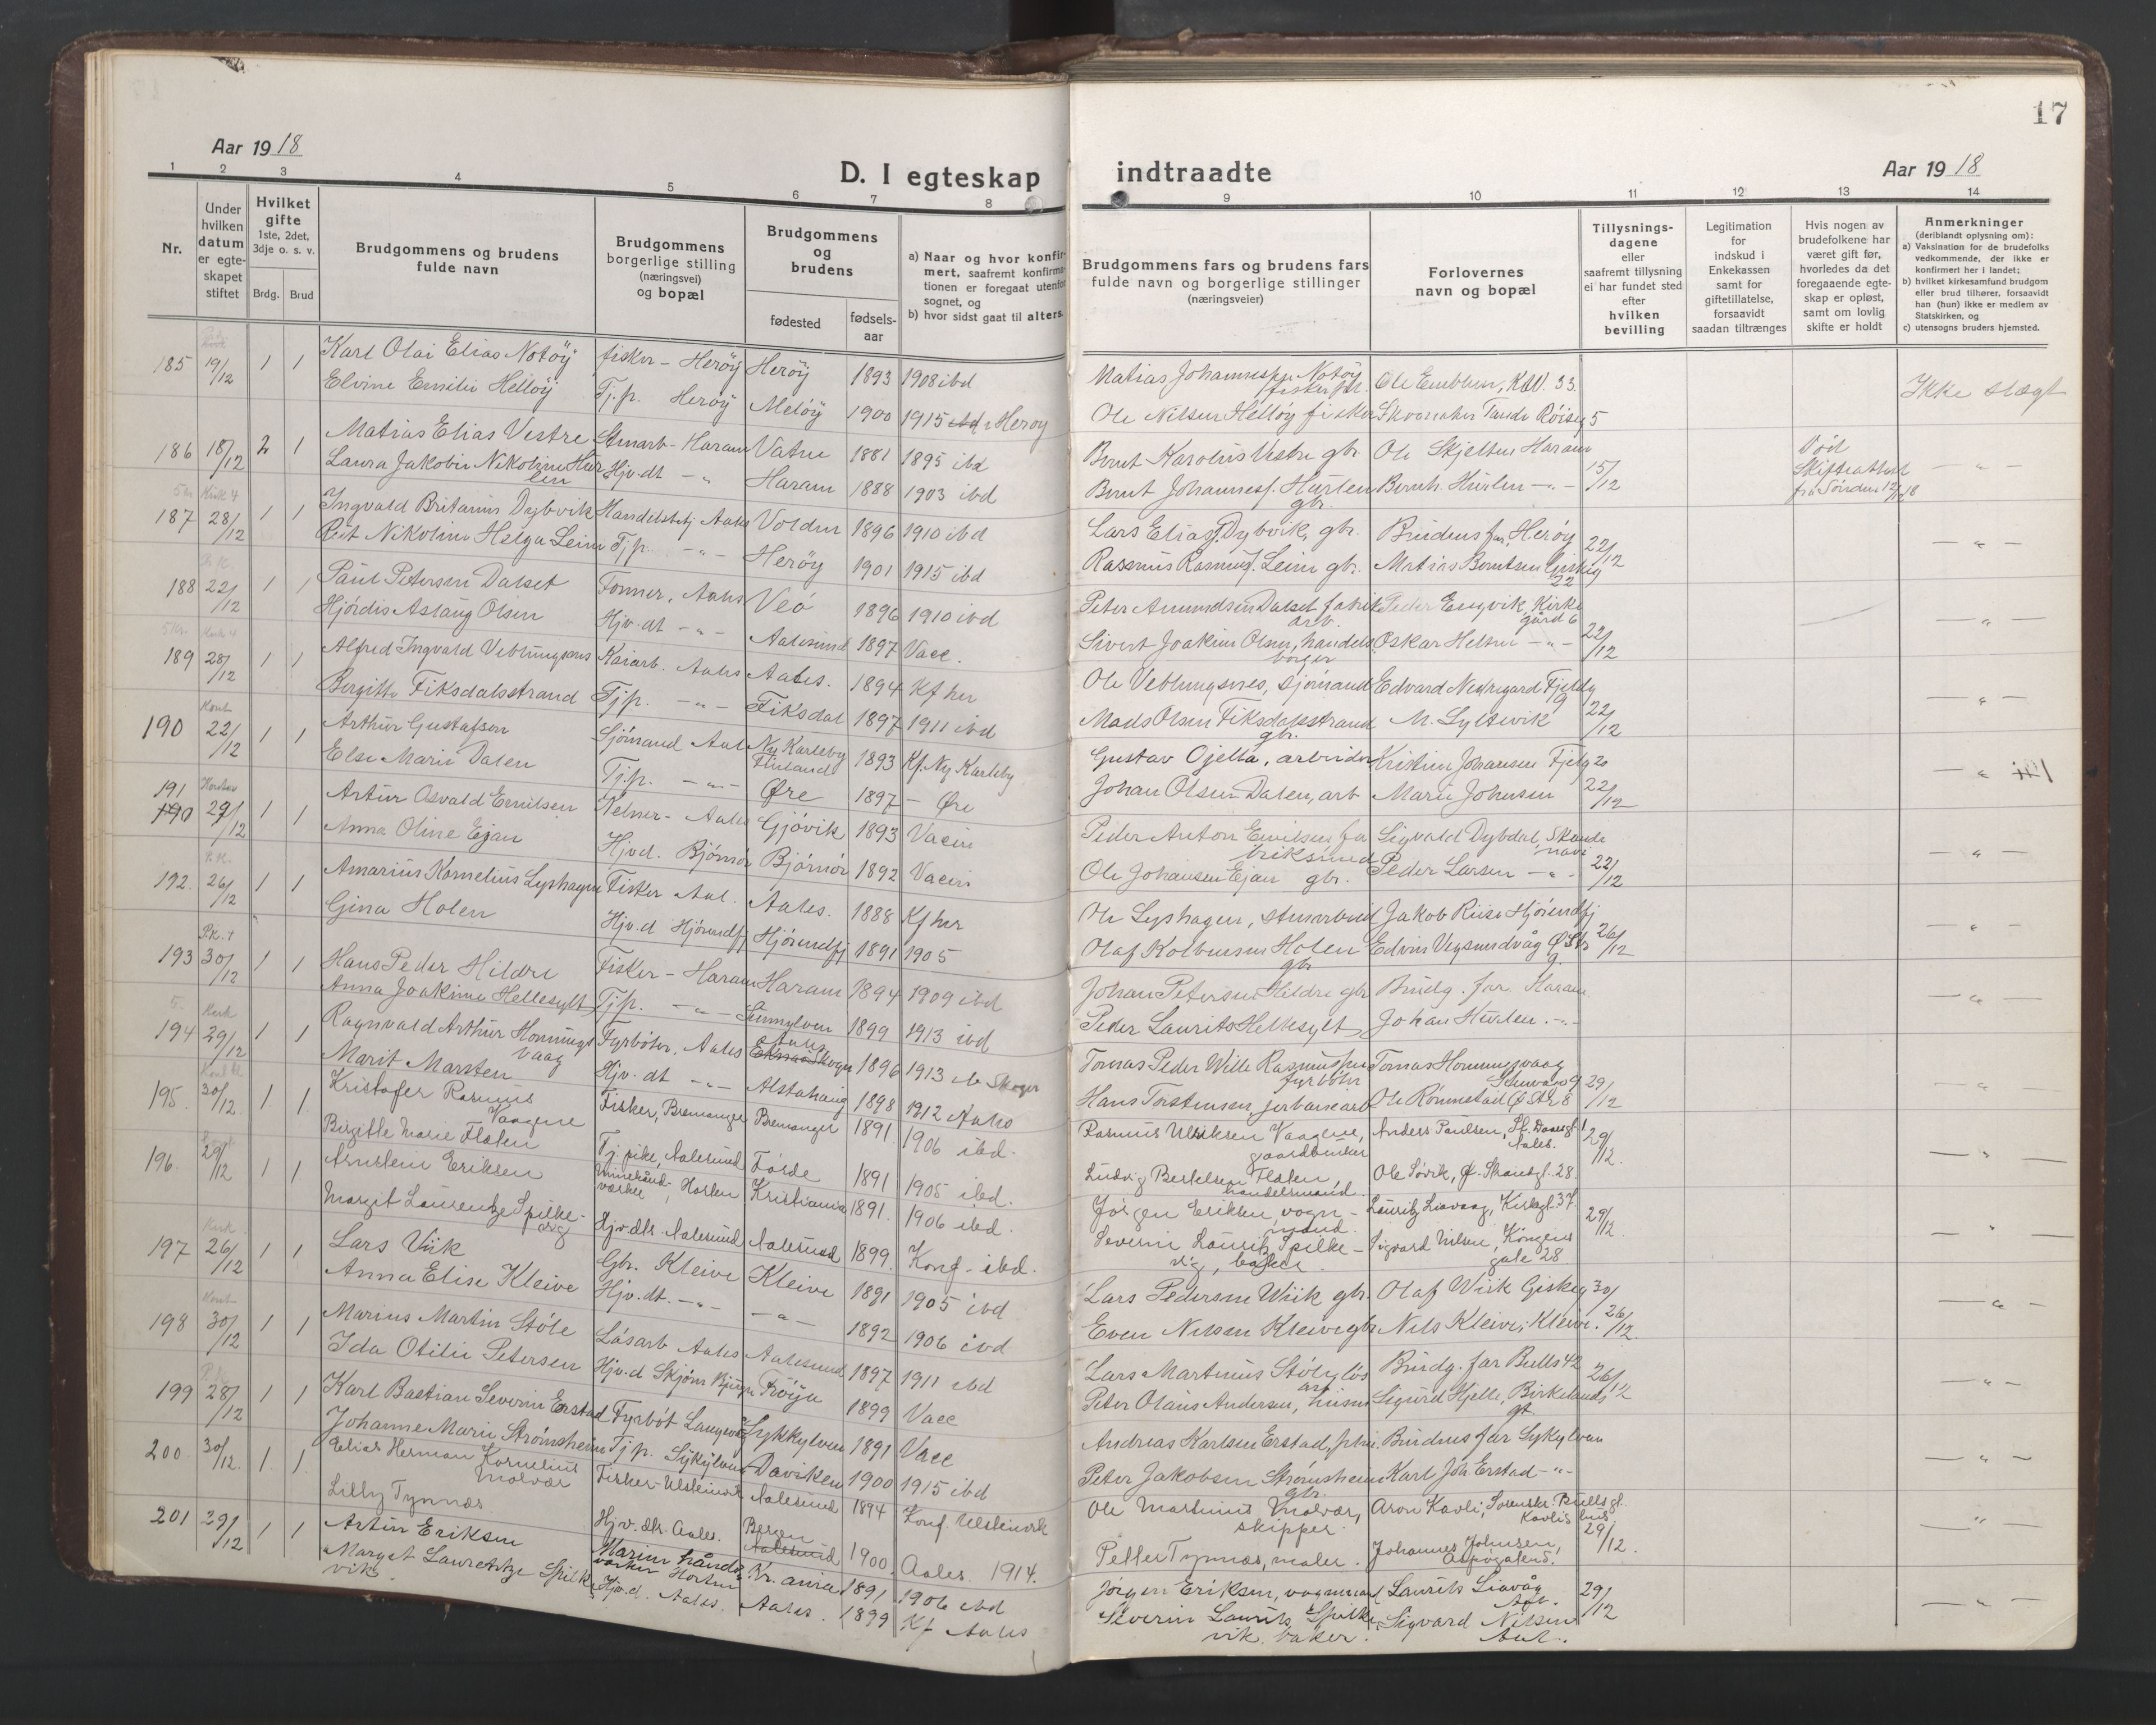 17
Aar 1918
D. I egteskap indtraadte
Aar 1918
1 2 3 4 5 6 7 8 9 10 11 12 13 14
Nr.
Under hvilken datum er egteskapet stiftet
Hvilket gifte 1ste, 2det, 3dje o. s. v.
Brdg. Brud
Brudgommens og brudens fulde navn
Brudgommens borgerlige stilling (næringsvei) og bopæl
Brudgommens og brudens
fødested
fødsels-aar
a) Naar og hvor konfirmert, saafremt konfirmationen er foregaat utenfor sognet, og
b) hvor sidst gaat til alters.
Brudgommens fars og brudens fars fulde navn og borgerlige stillinger (næringsveier)
Forlovernes navn og bopæl
Tillysnings-dagene eller saafremt tillysning ei har fundet sted efter hvilken bevilling
Legitimation for indskud i Enkekassen samt for giftetillatelse, forsaavidt saadan tiltrænges
Hvis nogen av brudefolkene har været gift før, hvorledes da det foregaaende egteskap er opløst, samt om lovlig skifte er holdt
Anmerkninger
(deriblandt oplysning om):
a) Vaksination for de brudefolks vedkommende, der ikke er konfirmert her i landet;
b) hvilket kirkesamfund brudgom eller brud tilhører, forsaavidt han (hun) ikke er medlem av Statskirken, og
c) utensogns bruders hjemsted.
185 19/12 1 1 Karl Olai Elias Notøy fisker - Herøy Herøy 1893 1908 ibd Matias Johannessen Notøy fisker Ole Emblem, 33. Ikke slægt
Elvine Emilie Helløy Tj.p. Herøy Meløy 1900 1915 i Herøy Ole Nilsen Helløy fisker Skomaker Tande Røiseg 5
186 18/12 2 1 Matias Elias Vestre Stmarb - Haram Vatne 1881 1895 ibd Bernt Karolus Vestre gbr. Ole Skjelten Haram Død
Laura Jakobine Nikoline Hurlen Hjv.dt - " Haram 1888 1903 ibd Bernt Johannes. Hurlen gbr. Bernh. Hurlen - " - 15/12 Skifteattest fra Søndm - " -
187 28/12 1 1 Ingvald Britanius Dybvik Handelsbetj Aales Volden 1896 1910 ibd Lars Elias. Dybvik, gbr. Brudens far, Herøy - " -
Nikoline Helga Leine Tj.p. - " - Herøy 1901 1915 ibd Rasmus Rasmus. Leine gbr. Matias Berntsen Giskeg 22 22/12
188 22/12 1 1 Paul Petersen Dalset Tønner, Aales Veö 1896 1910 ibd Peter Amundsen Dalset fabrik arb. Peder Engvik, Kirke gård 6 - " -
Hjördis Aslaug Olsen Hjv.dt - " - Aalesund 1897 Vacc. Sivert Joakim Olsen, handels borger Oskar Heltne - " - 22/12
189 28/12 1 1 Alfred Ingvald Veblungsnes Kaiarb. Aales Aales. 1894 Kf her Ole Veblungsnes, sjömand Edvard Nedregaard Fjeldg 9 - " -
Bergitte Fiksdalsstrand Tj.p. - " - Fiksdal 1897 1911 ibd Mads Olsen Fiksdalsstrand gbr. M. Syltevik 22/12
190 22/12 1 1 Arthur Gustafson Sjömand Aal Ny Karleby Finland 1893 Kf. Ny Karleby Gustav Ojella, arbeider Kristine Johansen Fjelg 20 - " -
Else Marie Dalen Tj.p. - " - Øre 1897 - Øre Johan Olsen Dalen, arb Marie Johnsen 22/12
191 29/12 1 1 Artur Osvald Emilsen Kelner - Aales Gjövik 1893 Vaccin Peder Anton Emilsen fabriksmed Sigvald Dybdal, Skande navi - " -
Anna Oline Ejan Hjvd. Bjørnør Bjørnør 1892 Vaccin Ole Johansen Ejan gbr. Peder Larsen - " - 22/12
192. 26/12 1 1 Amarius Kornelius Lyshagen Fisker Aal. Aales. 1888 Kf her Ole Lyshagen, stmarbeid Jakob Riise Hjørundfj - " -
Gina Holen Hjv.d Hjörundfj Hjörundfj 1891 1905 Olaf Kolbensen Holen gbr Edvin Vegsundvåg Ø.Str 26/12
193 30/12 1 1 Hans Peder Hildre Fisker - Haram Haram 1894 1909 ibd Johan Petersen Hildre gbr Brudg. far Haram. - " -
Anna Joakime Hellesylt Tj.p. - " - Sunnylven 1899 1913 ibd Peder Laurits Hellesylt Johan Hurlen. - " -
194 29/12 1 1 Ragnvald Arthur Honningsvaag Fyrböter, Aales 1896 1913 Skoger Tomas Peder Wille Rasmussen fyrböter Tomas Honningsvaag - " -
Marit Marsten Hjv. dt - " - Alstahaug 1898 1912 Aales Hans Torstensen, jernbanearb Ole Rönnestad Ø Str 8 29/12
195. 30/12 1 1 Kristofer Rasmus Vaagene Fisker, Bremanger Bremanger 1891 1906 ibd. Rasmus Ulriksen Vaagene, gaardbruker Anders Paulsen, Aales. 29/12. - " -
Birgitte Marie Flaten Tj. pike, Aalesund Förde 1891 1905 ibd. Ludvig Bertelsen Flaten, handelsmand. Ole Søvik, Ø. Strandgt. 28.
196. 29/12 1 1 Arnstein Eriksen Minehåndverker, Horten Kristiania 1891. 1906 ibd. Jörgen Eriksen vogn-mand. Lauritz Liavaag, Kirkegt. 37. 29/12. "
Margit Laurentze Spilkevig Hjv.dtr. Aalesund Aalesund 1899. Konf. ibd. Severin Lauritz Spilkevig, baker. Sigvard Nilsen, Kongens gate 28
197 26/12 1 1 Lars Viik Gbr. Kleive Kleive 1891 1905 ibd Lars Pedersen Wiik gbr. Olaf Wiik Giskeg 30/ - " -
Anna Elise Kleive Hjv.dt. - " - - " - 1892 1906 ibd Even Nilsen Kleive gbr Nils Kleive, Kleive. 26/12
198 30/12 1 1 Marius Martin Støle Läsarb Aales Aalesund 1897 1911 ibd Lars Martinus Støle løsarb Brudg. far Bulls 42 26/12 - " -
Ida Otilie Petersen Hjv.d Skjörn Fröya 1899 Vacc Peter Olaus Andersen, husm Sigurd Hjelle, Birkelands gt.
199 28/12 1 1 Karl Bastian Severin Erstad Fyrböt Langevåg Sykkylven 1891 Vacc Andreas Karlsen Erstad, Brudens far Sykylven - " -
Johanne Marie Strömsheim Tj.p. Sykylven Daviken 1900 1915 ibd Peter Jakobsen Strømsheim gbr. Karl Joh. Erstad - " -
200. 30/12. 1 1 Elias Herman Kornelius Molvær Fisker - Ulsteinvik Aalesund 1894 Konf. Ulsteinvik Ole Martinus Molvær, skipper. Aron Kavli, Bullsgt. Kavlis hus. - " -
Lilly Tynnæs Hjv. dtr. Aales. Bergen 1900. Aales. 1914. Petter Tynnæs, maler. Johannes Johnsen, Aspøgaten 5. 29/12.
201 29/12 1 1 Artin Eriksen Marine håndverker Horten Kr.ania 1891 1906 ibd Jörgen Eriksen, vognmand Laurits Liavåg Aal. 29/12 - " -
Margit Laurentze Spilkevik Hjv.d. Aales. Aales. 1899 Kf Aales Severin Laurits Spilkevik, baker. Sigvard Nilsen Aal.